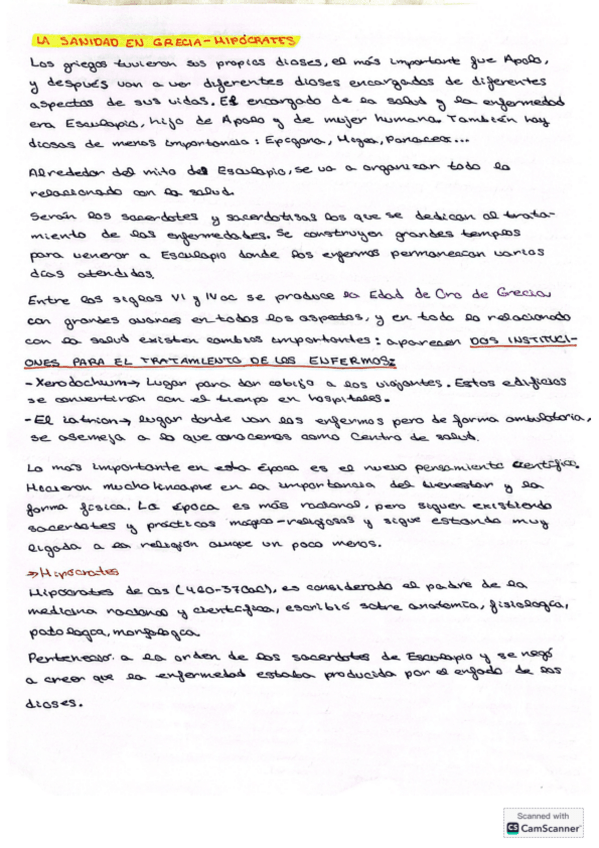 LA SANIDAD EN GRECIA - HIPÓCRATES
Los griegos tuvieron sus propios dioses, el más importante fue Apolo,
y después van a ver diferentes dioses encargados de diferentes
aspectos de sus vidas. El encargado de la salud y la enfermedad
era Esculapio, hijo de Apolo y de mujer humana. También hay
diosas de menos importancia: Epcgona, Higea, Panacea...
Alrededor del mito del Esculapio, se va a organizar todo lo
relacionado con la salud.
Serán los sacerdotes y sacerdotisas los que se dedican al trata-
miento de las enfermedades. Se construyen grandes templos
para venerar a Esculapio donde los enfermos permanecían varios
días atendidos.
Entre los siglos VI y IV ac se produce la Edad de Oro de Grecia
con grandes avances en todos los aspectos, y en todo lo relacionado
con la salud existen cambios importantes: aparecen DOS INSTITUCI-
ONES PARA EL TRATAMIENTO DE LOS ENFERMOS:
- Xenodochum → Lugar para dar cobijo a los viajantes. Estos edificios
se convertirán con el tiempo en hospitales.
- El iatrion → lugar donde van los enfermos pero de forma ambulatoria,
se asemeja a lo que conocemos como Centro de salud.
Lo más importante en esta época es el nuevo pensamiento científico.
Hicieron mucho hincapie en la importancia del bienestar y la
forma física. La época es más racional, pero siguen existiendo
sacerdotes y prácticas mágico-religiosas y sigue estando muy
ligada a la religión aunque un poco menos.
→ Hipócrates
Hipócrates de Cos (460-370ac), es considerado el padre de la
medicina racional y científica, escribió sobre anatomía, fisiología,
patología, morfología
Perteneció a la orden de los sacerdotes de Esculapio y se negó
a creer que la enfermedad estaba producida por el enfado de los
dioses.
Scanned with
CS CamScanner